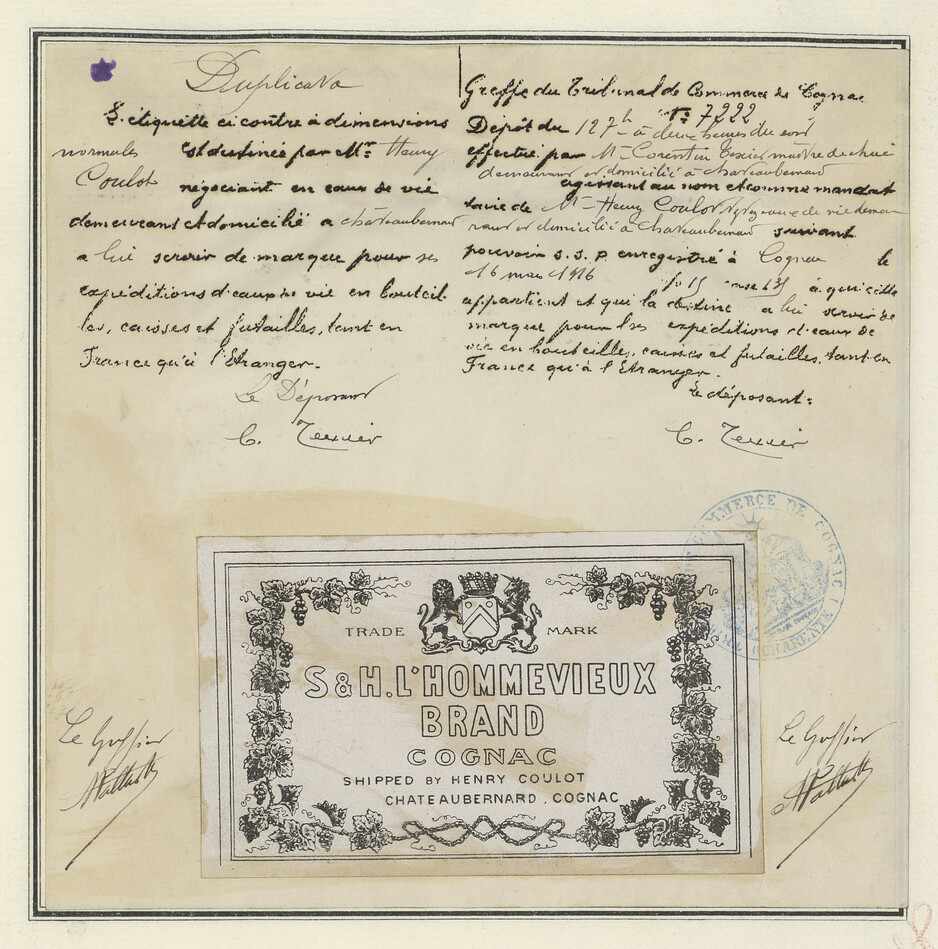 Duplicata
L'étiquette ci contre à dimensions
normales est destinée par Mr. Henry
Coulot négociant en eaux de vie
demeurant et domicilié a chateaubernard
a lui servir de marque pour ses
expéditions d'eaux de vie en bouteil
les, caisses et futailles, tant en
France qu'à l'Etranger.
Le Déposant
C. Texier
Greffe du Tribunal de Commerce de Cognac
No 7222
Dépôt du à deux heures du soir
effectué par Mr Corentin Texier maître de chai
demeurant et domicilié à chateaubernard
agissant au nom et comme mandat
taire de Mr Henry Coulot Ngt eaux de vie demeu
rant et domicilié à Chateaubernard suivant
pouvoir s.s.p. enregistré à Cognac le
16 mai 1916 fo 15 case 131 à qui elle
appartient et qui la destine a lui servir de
marque pour les expéditions d'eaux de
vie en bouteilles, caisses et futailles, tant en
France qu'à l'Etranger.
Le déposant:
C. Texier
COMMERCE DE COGNAC
CHARENTE
TRADE MARK
S & H. L'HOMMEVIEUX
BRAND
COGNAC
SHIPPED BY HENRY COULOT
CHATEAUBERNARD, COGNAC
Le Greffier
Le Greffier